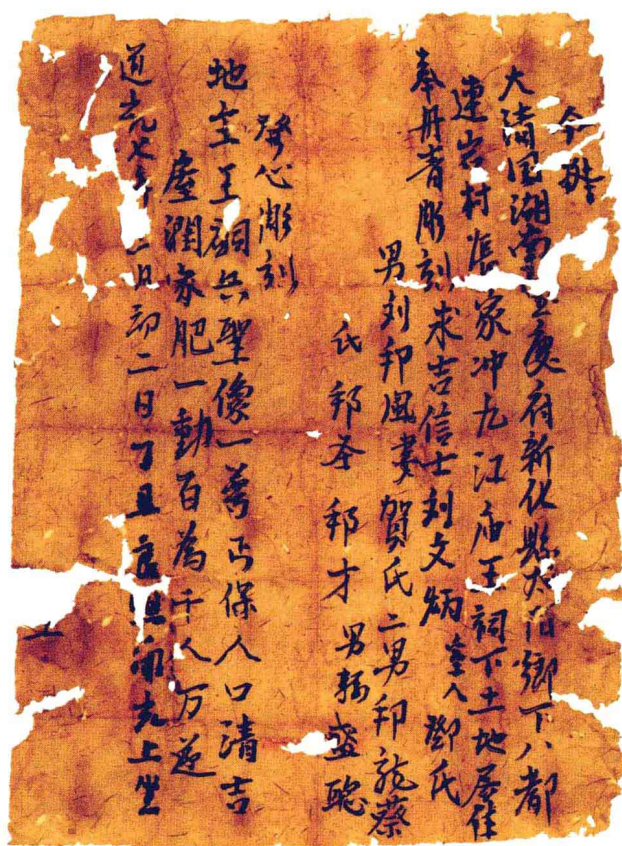 今敬
大清国湖南宝慶府新化縣大阳鄉下八都
連岩村張家冲九江庙王祠下土地居住
奉丹青彫刻求吉信士刘文炳室人鄧氏
男刘邦凰妻賀氏二男邦龍蔡
氏邦圣邦才男
發心彫刻
地主王嗣兵聖像一尊正保人口清吉
屋潤家肥一動百為千人万
道光 年二月初二日丁丑良 開光上坐